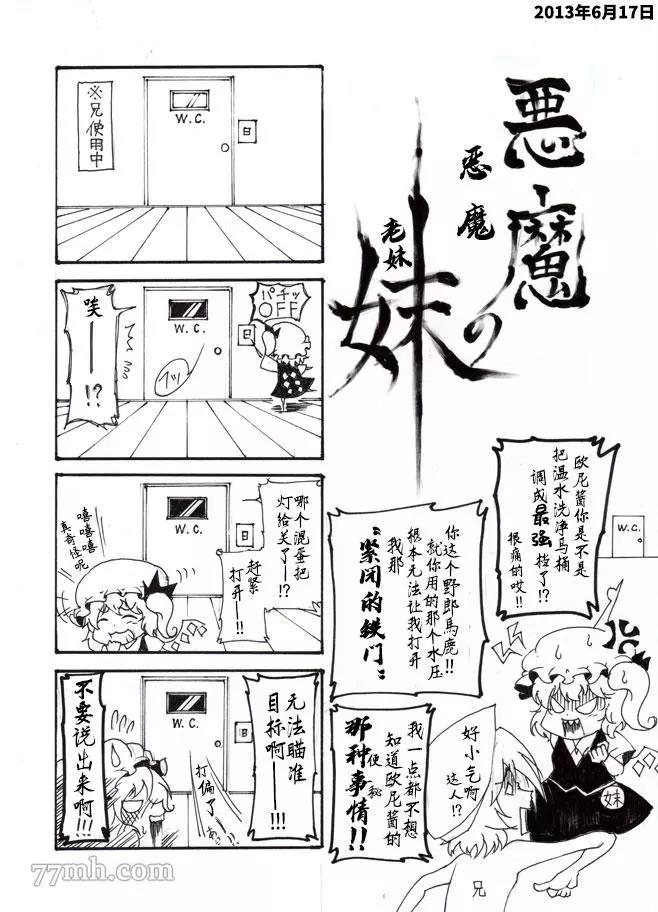 2013年6月17日
悪魔の妹
恶魔
老妹
※兄使用中
W.C.
パチッ
OFF
W.C.
フッ
唉——!?
哪个混蛋把
灯给关了——!?
赶紧
打开——!!
W.C.
嘻嘻嘻
真奇怪呢
无法瞄准
目标啊——!!!
W.C.
打偏了——
不要说出来啊!!!
欧尼酱你是不是
把温水洗净马桶
调成最强档了!?
很痛的哎!!
W.C.
你这个野郎馬鹿!!
就你用的那个水压
根本无法让我打开
我那
“紧闭的铁门”
我一点都不想
知道欧尼酱的
那种便秘
事情!!
好小气啊
达人!?
妹
兄
77mh.com